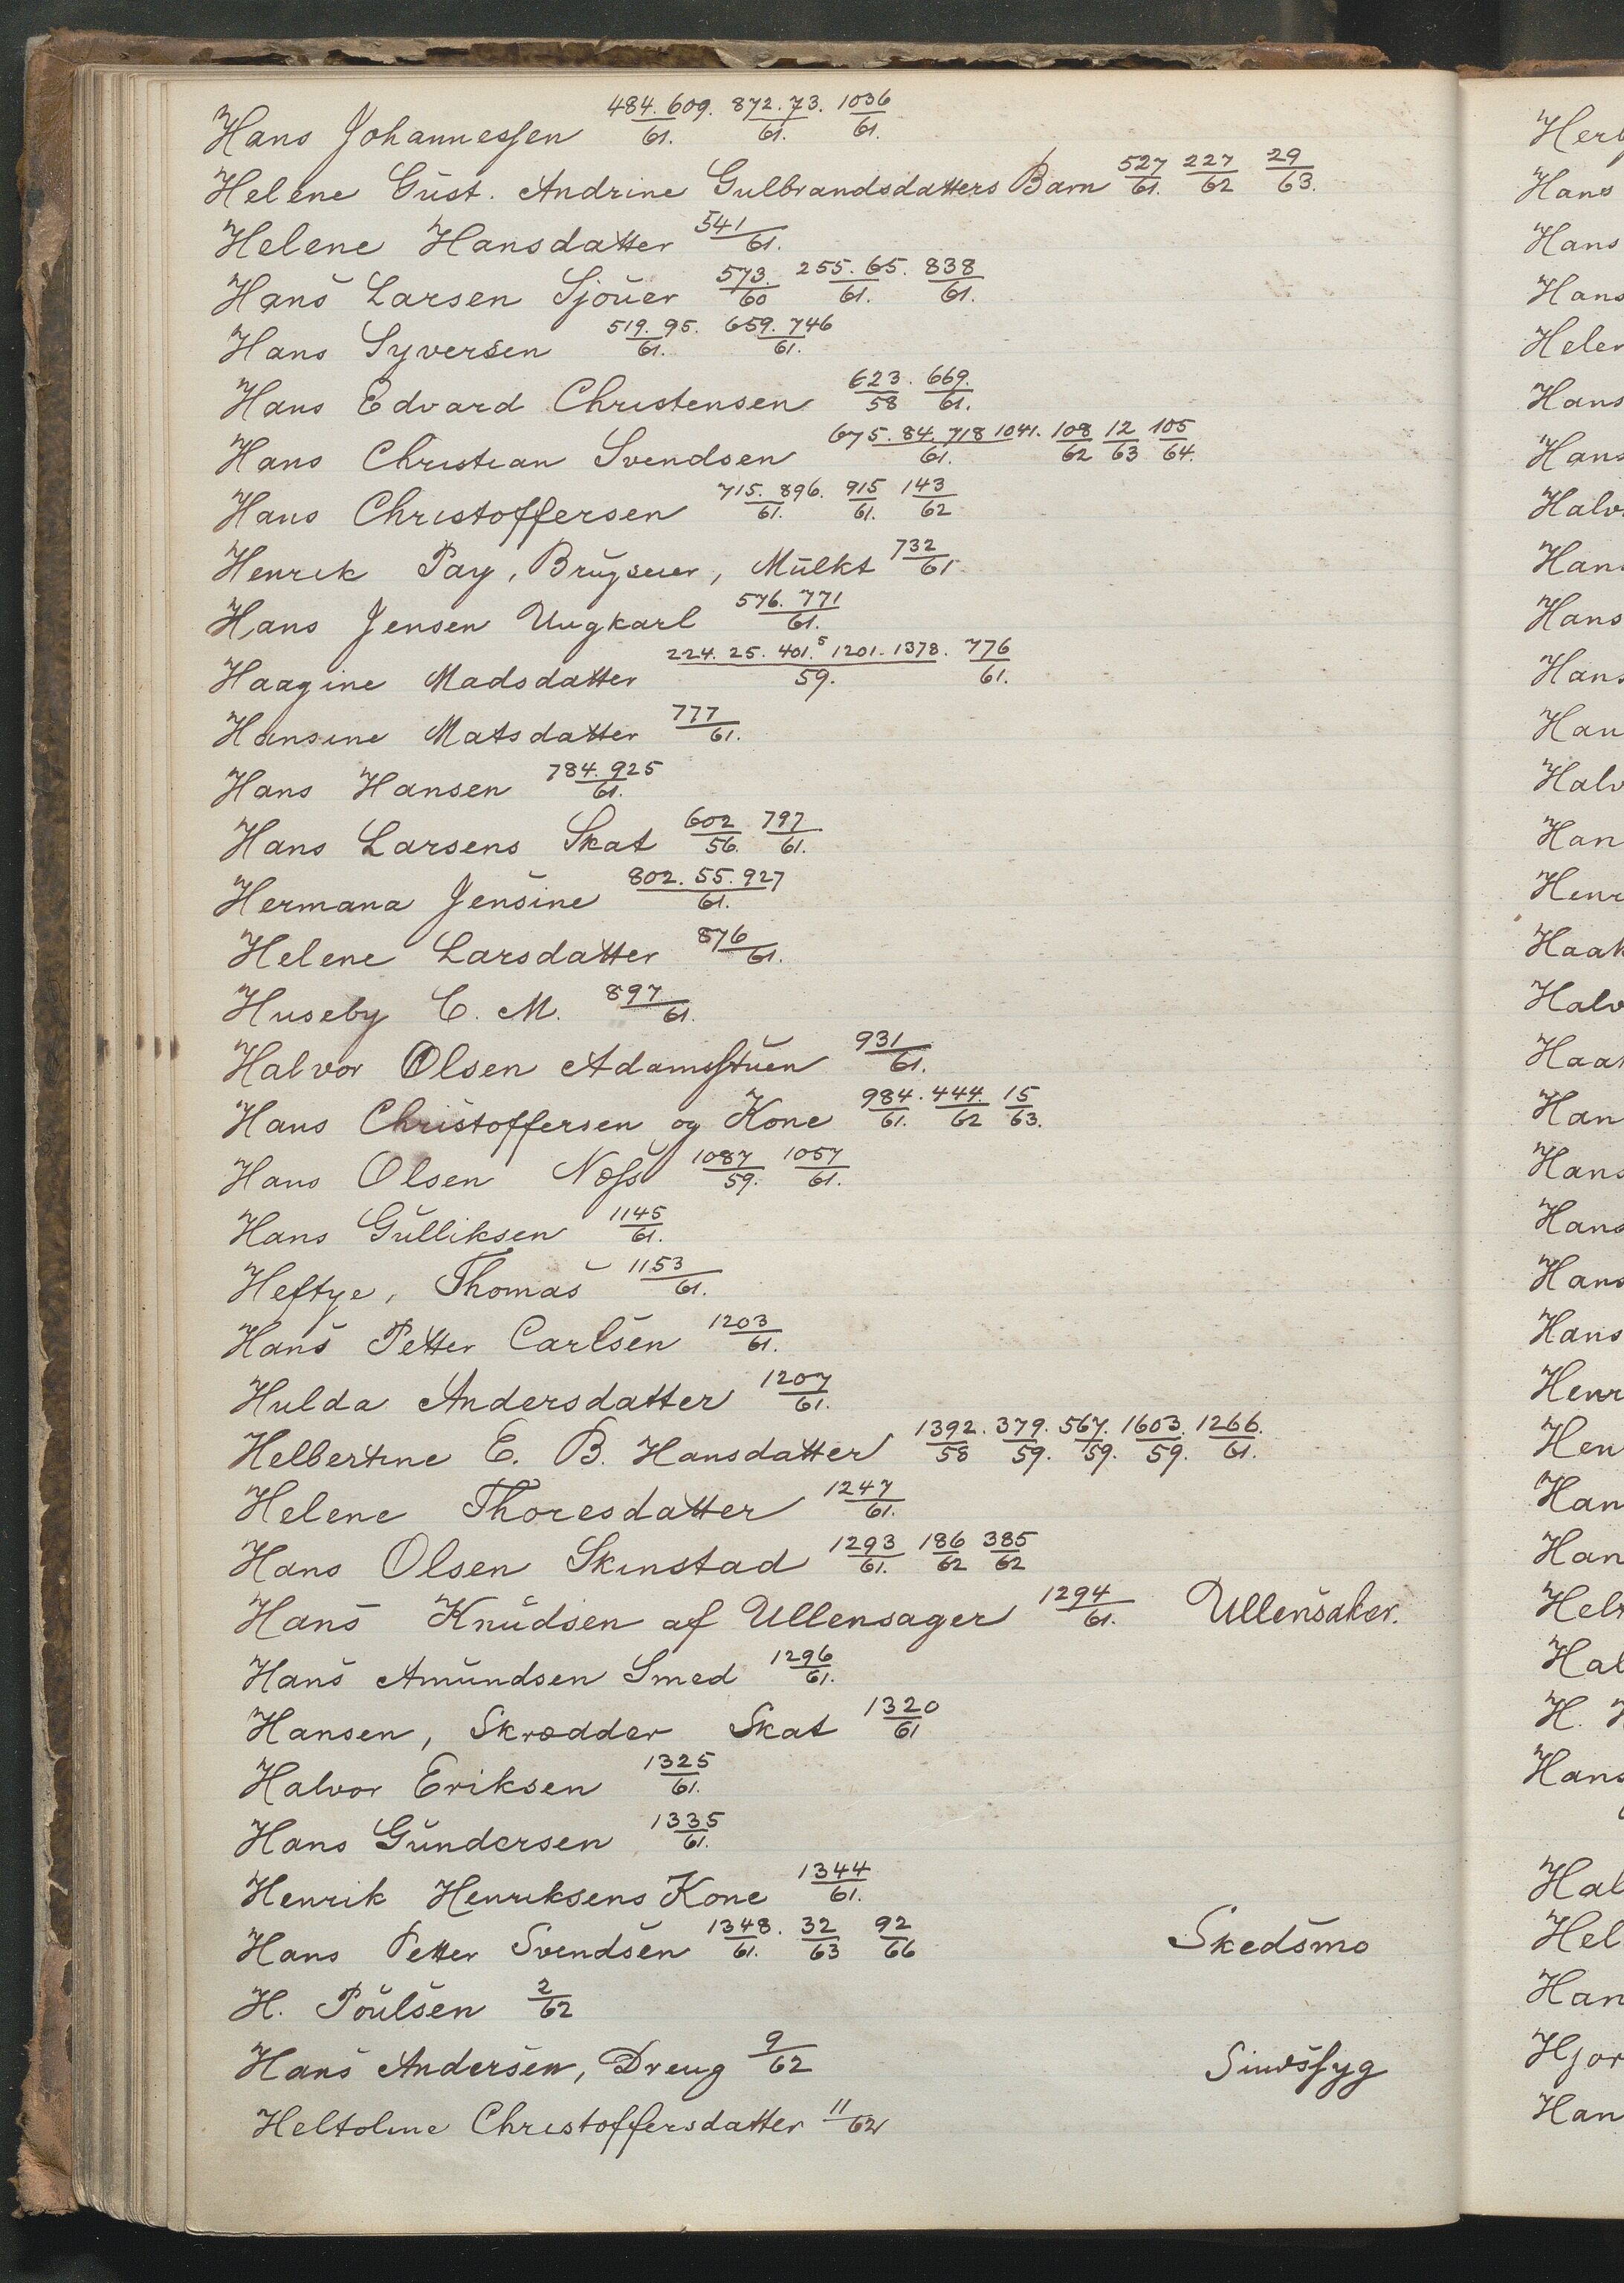 Hans Johannesen 484. 609./61. 872. 73./61. 1036/61.
Helene Gust. Andrine Gulbrandsdatters Barn 527/61. 227/62 29/63.
Helene Hansdatter 541/61.
Hans Larsen Sjouer 573./60 255. 65./61. 838/61.
Hans Syversen 519. 95./61. 659. 746/61.
Hans Edvard Christensen 623./58 669./61.
Hans Christian Svendsen 675. 84. 718 1041./61. 108/62 12/63 105/64.
Hans Christoffersen 715. 896./61. 915/61. 143/62
Henrik Pay, Brugseier, Mulkt 732/61
Hans Jensen Ungkarl 576. 771/61.
Haagine Madsdatter 224. 25. 401.5 1201. 1378./59. 776/61.
Hansine Matsdatter 777/61.
Hans Hansen 784. 925/61.
Hans Larsens Skat 602/56. 797/61.
Hermana Jensine 802. 55. 927/61.
Helene Larsdatter 876/61.
Huseby C. M. 897/61.
Halvor Olsen Adamsstuen 931/61.
Hans Christoffersen og Kone 984./61. 444./62 15/63.
Hans Olsen Næss 1087/59. 1057/61.
Hans Gulliksen 1145/61.
Heftye, Thomas 1153/61.
Hans Petter Carlsen 1203/61.
Hulda Andersdatter 1207/61.
Helbertine E. B. Hansdatter 1392./58 379./59. 567./59. 1603./59. 1266./61.
Helene Thoresdatter 1247/61.
Hans Olsen Skinstad 1293/61. 186/62 385/62
Hans Knudsen af Ullensager 1294/61. Ullensaker.
Hans Amundsen Smed 1296/61.
Hansen, Skrædder Skat 1320/61
Halvor Eriksen 1325/61.
Hans Gundersen 1335/61.
Henrik Henriksens Kone 1344/61.
Hans Petter Svendsen 1348./61. 32/63 92/66 Skedsmo
H. Poulsen 2/62
Hans Andersen, Dreng 9/62 Sindssyg
Christoffersdatter 11/62